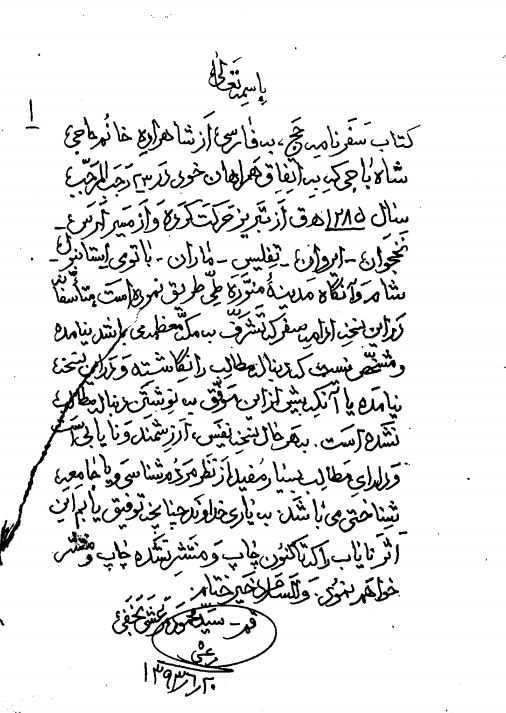 باسمه تعالی
۱
کتاب سفرنامه حج، به فارسی از شاهزاده خانم حاجیه
شاه باجی که به اتفاق همراهان خود در ۲۳ رجب المرجب
سال ۱۲۸۵ هـ ق از تبریز حرکت کرده و از مسیر ارس -
نخجوان - ایروان - تفلیس - باتوم استانبول -
شام و آنگاه مدینهٔ منوره طی طریق نموده است متأسفانه
در این نسخه ادامه سفر که تشرف به مکه معظمه می باشد نیامده
و مشخص نیست که دنبال مطالب را نگاشته و در این نسخه
نیامده یا آنکه بیش از این موفق به نوشتن دنبال مطالب
نشده است. به هر حال نسخه نفیس، ارزشمند و نایابی است
و دارای مطالب بسیار مفید از نظر مردم شناسی و یا جامعه
شناختی می باشد. به یاری خداوند چنانچه توفیق یابم این
اثر نایاب را که تاکنون چاپ و منتشر نشده چاپ و منتشر
خواهم نمود. والسلام خیر ختام.
قم - سید محمود مرعشی نجفی
۱۳۹۳/۶/۲۰